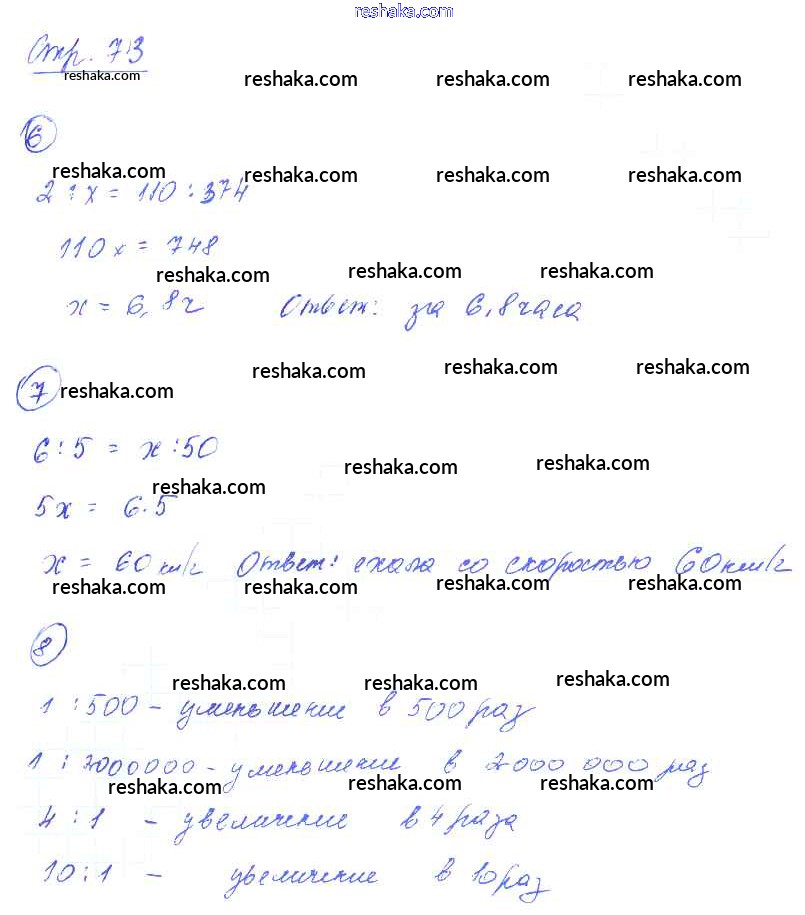 reshaka.com
Стр. 73
reshaka.com reshaka.com reshaka.com reshaka.com
6
reshaka.com reshaka.com reshaka.com reshaka.com
2 : x = 110 : 374
110x = 748
reshaka.com reshaka.com reshaka.com
x = 6,8ч Ответ: за 6,8 часа
7 reshaka.com reshaka.com reshaka.com reshaka.com
6 : 5 = x : 50
reshaka.com reshaka.com reshaka.com
5x = 6·5
x = 60 км/ч Ответ: ехала со скоростью 60 км/ч
reshaka.com reshaka.com reshaka.com reshaka.com
8
reshaka.com reshaka.com reshaka.com
1 : 500 - уменьшение в 500 раз
1 : 2000000 - уменьшение в 2000 000 раз
reshaka.com reshaka.com reshaka.com
4 : 1 - увеличение в 4 раза
10 : 1 - увеличение в 10 раз